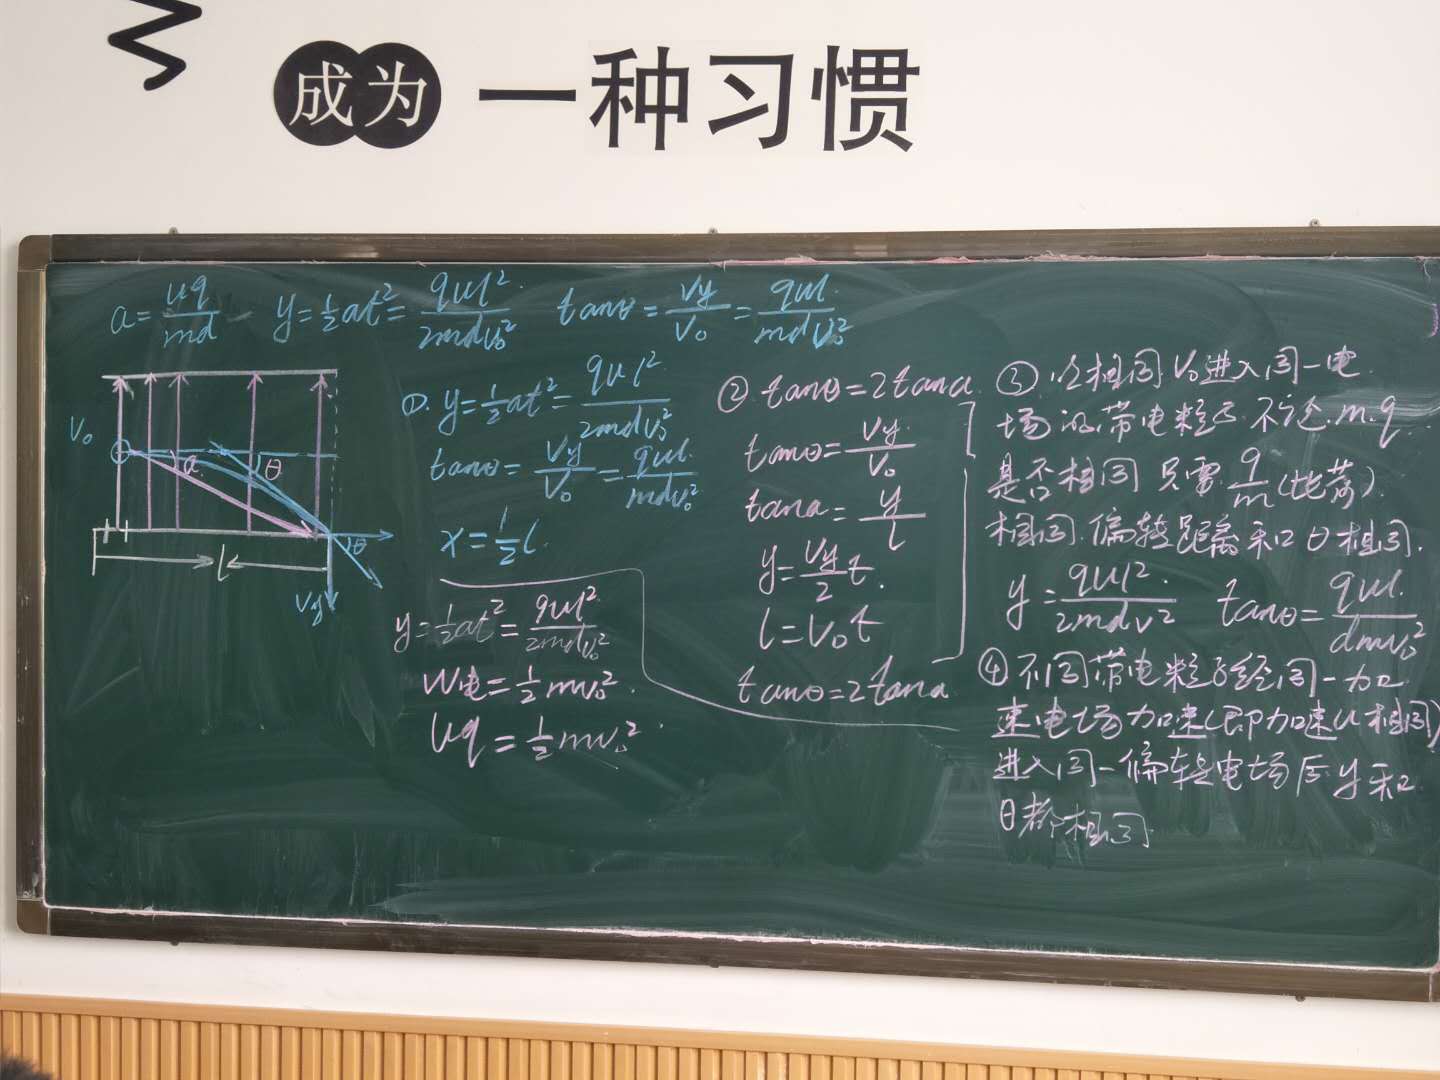 成为 一种习惯
a=uq/md y=½at²=qul²/2mdv₀² tanθ=vy/v₀=qul/mdv₀²
①. y=½at²=qul²/2mdv₀²
tanθ=vy/v₀=qul/mdv₀²
x=½l.
y=½at²=qul²/2mdv₀²
W电=½mv₀².
Uq=½mv₀².
②tanθ=2tana
tanθ=vy/v₀
tana=y/l
y=vy/2 t.
l=v₀t
tanθ=2tana
③.以相同V₀进入同一电
场的带电粒子.不论.m.q.
是否相同 只需 q/m(比荷).
相同.偏转距离和θ相同.
y=qul²/2mdv² tanθ=qul/dmv₀²
④不同带电粒子经同一加
速电场加速(即加速U相同)
进入同一偏转电场后.y和
θ都相同
V₀
a
θ
θ
l
Vy